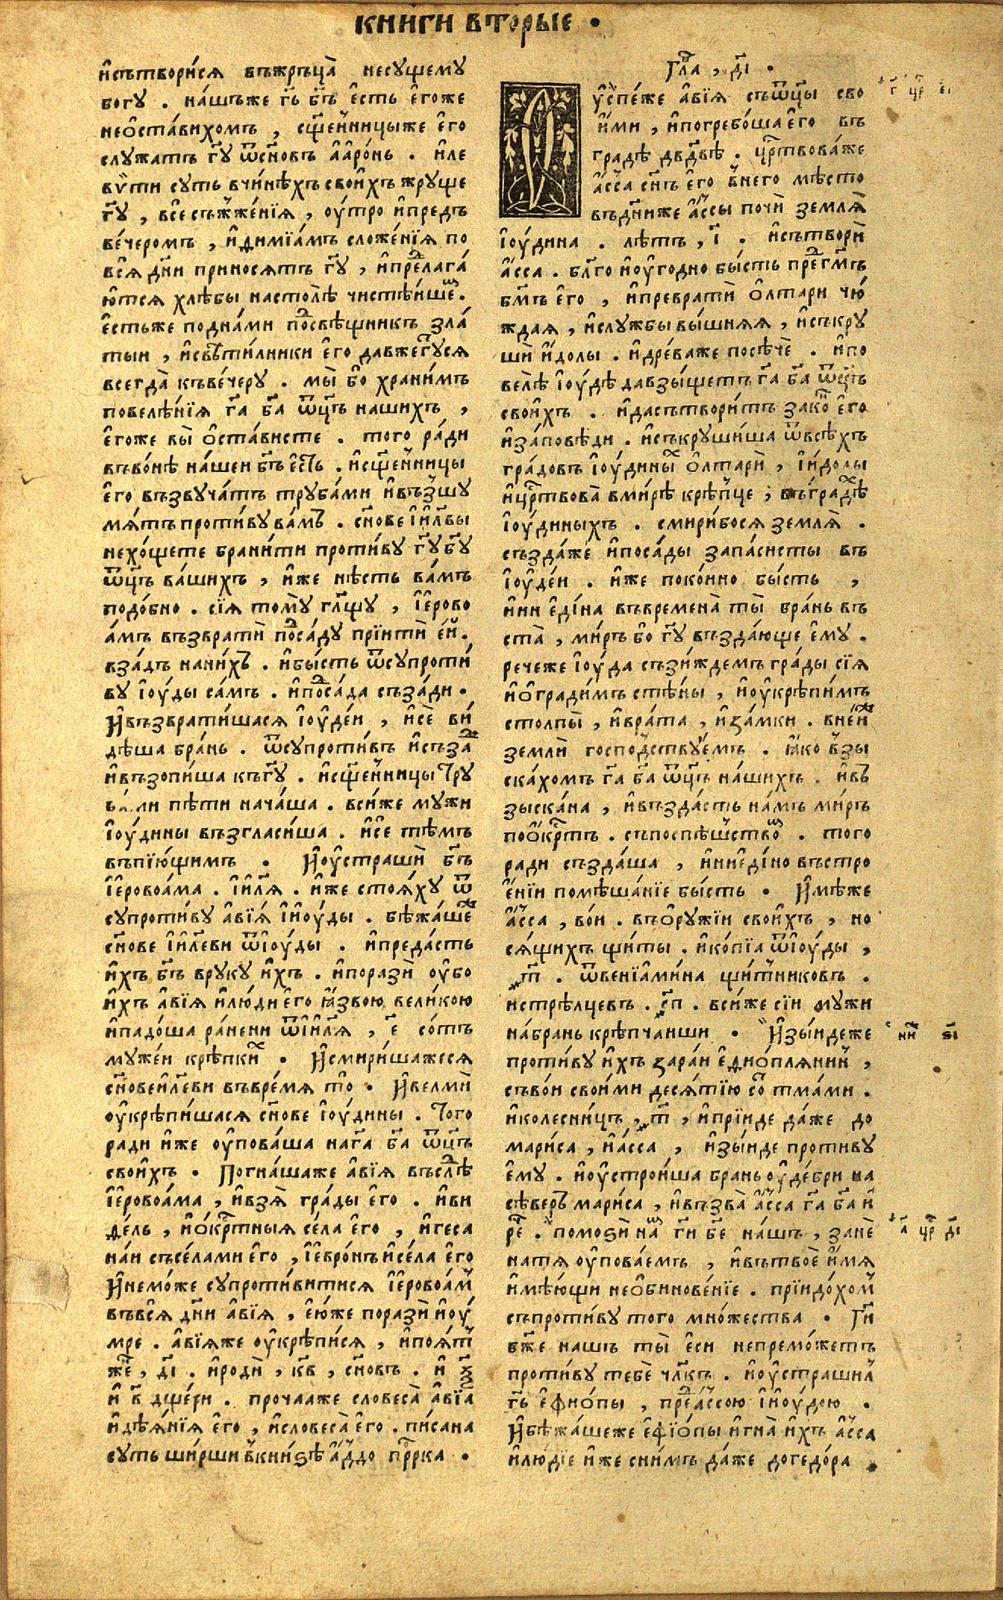 книги вторые .
и҆сътвори́сѧ въжръца̀ несущему
богу . на́шъже гь҃ бг҃ъ е҆сть е҆гоже
нео҆ста́вихомъ , сщ҃е́нницыже е҆го
служатъ гд҃у ѿсн҃овъ а҆аро́нь . и҆ле
вѵ҆ти суть вчи́нѣхъ свои́хъ жруще
гд҃у , все съжже́нїѧ , оу҆тро и҆предъ
ве́черомъ , и҆ димїа́мъ сложе́нїѧ по
всѧ̀ дн҃и приносѧтъ гд҃у , и҆предлага́
ютсѧ хлѣ́бы настолѣ̀ чистѣ́ише .
е҆стьже поднами посвѣ́щникъ зла
тыи , и҆свѣти́лники е҆го давжегу́сѧ
всегда̀ къве́черу . мы́ бо храни́мъ
повелѣ́нїѧ га҃ ба҃ ѿц҃ъ нашихъ ,
е҆гоже вы̀ о҆ста́висте . того ра́ди
въво́нѣ на́шеи бг҃ъ е҆сть . и҆сщ҃е́нницы
е҆го възвуча́тъ труба́ми и҆възшу
мѧ́тъ проти́ву ва́мъ . сн҃ове і҆и҃лви
нехо́щете брани́ти проти́ву гд҃у бг҃у
ѿц҃ъ ва́шихъ , и҆же нѣ́сть ва́мъ
подо́бно . сїѧ̀ тому гл҃щу , і҆е҆рово
а́мъ възвратѝ поса́ду прїитѝ е҆й .
вза́дъ нани́хъ . и҆бы́сть ѿсупроти́
ву і҆оу́ды са́мъ . и҆поса́да съза́ди .
И҆възврати́шасѧ і҆оу҆де́и , и҆сѐ ви́
дѣша бра́нь . ѿсупроти́въ и҆съза́д
и҆възопи́ша къгд҃у . и҆сщ҃е́нницы тру
ба́ми пѣти нача́ша . вси́же мужи
і҆оу́дины възгласи́ша . и҆се тѣ́мъ
въпїю́щимъ . И҆оу҆страшѝ бг҃ъ
і҆е҆ровоа́ма . і҆и҃лѧ . и҆же стоѧ́ху ѿ
супроти́ву а҆вїѧ́ і҆и҆оу́ды . бѣжа́ше
сн҃ове і҆и҃леви ѿі҆оу́ды . и҆преда́сть
и҆́хъ бг҃ъ вруку и҆́хъ . и҆поразѝ оу҆бо
и҆́хъ а҆вїѧ и҆лю́ди е҆го ꙗ҆́звою вели́кою
и҆падо́ша ра́нени ѿі҆и҃лѧ , е҃ со́тъ
му́жеи крѣпки́х . И҆смири́шажесѧ
сн҃овеи҃леви въвре́мѧ то̀ . И҆велмѝ
оу҆крѣпи́шасѧ сн҃ове і҆оу́дины . Того
ра́ди и҆же оу҆пова́ша нага҃ ба҃ ѿц҃ъ
свои́хъ . Погна́шаже а҆вїѧ въслѣ́д
і҆е҆ровоа́ма , и҆взѧ̀ гра́ды е҆го . и҆ви
де́ль , и҆о҆кр҃тныѧ се́ла е҆го , и҆геса
на́и съсе́лами е҆го , і҆е҆вро́нъ и҆се́ла е҆го
И҆немо́же супротиви́тисѧ і҆е҆ровоа́м
въвсѧ̀ дн҃и а҆вїѧ , е҆ю́же поразѝ и҆оу́
мре . а҆вїѧже оу҆крѣпи́сѧ , и҆поѧ́т
же́нъ , ді҃ . и҆родѝ , кв҃ , сн҃овъ . и҆ ѕ҃
и҆ в҃ дще́ри . прочааже словеса̀ а҆вїа
и҆дѣѧ́нїѧ е҆го , и҆словеса̀ е҆го . пи́сана
суть ши́рши в҆кни́ѕѣ а҆́ддо пр҃рка .
Гла , ді҃ .
Оу҆спе́же а҆вїѧ съѿц҃ы сво
и҆ми , и҆погребо́ша е҆го въ
гра́дѣ дв҃двѣ . цр҃твова́же
а҆́сса сн҃ъ е҆го в҆него мѣ́сто
въдн҃иже а҆́ссы почѝ землѧ̀
і҆оу́дина . лѣ́тъ , і҃ . и҆сътворѝ
а҆́сса . бл҃го и҆оу҆годно бы́сть пре́дгм҃ъ
бг҃мъ е҆го , и҆превратѝ о҆лтари чю́
ждаѧ , и҆слу́жбы вы́шнѧѧ , и҆съкру
шѝ и҆́долы . и҆дре́важе посѣчѐ . и҆по
велѣ̀ і҆оу́дѣ давзы́щетъ га҃ ба҃ ѿц҃ъ
свои́хъ . и҆дасътвори́тъ зако́н е҆го
и҆за́повѣди . и҆съкруши́ша ѿвсѣ́хъ
гра́довъ і҆оу́дины́х о҆лтарѝ , і҆и҆́долы
и҆цр҃твова̀ вми́рѣ крѣ́пце , въгра́дѣ
і҆оу́диныхъ . смири́босѧ землѧ̀ .
създа́же и҆поса́ды запа́систы въ
і҆оу҆де́и . и҆же поко́ино бы́сть ,
и҆ни е҆ди́на въвремена̀ ты̀ бра́нь въ
ста̀ , ми́ръ бо гд҃у въздаю́ще е҆му .
речеже і҆оу́да съзи́ждемъ гра́ды сїѧ
и҆о҆гради́мъ стѣ́ны , и҆оу҆крѣпи́мъ
столпы̀ , и҆вра́та , и҆за́мки . вне́йже
землѝ госпо́дствуемъ . ꙗ҆́ко взы
ска́хомъ га҃ ба҃ ѿц҃ъ на́шихъ . и҆въ
зыска́на , и҆възда́сть на́мъ ми́ръ
поо҆́крт҃ъ . съпоспѣ́шство́м . того
ради създа́ша , и҆ниеди́но въстро
е҆нїи помѣша́нїе бы́сть . И҆мѣ́же
а҆́сса , во́и . въо҆ру́жїи свои́хъ , но
сѧ́щихъ щиты . и҆ко́пїа ѿі҆оу́ды ,
т҃ . ѿвенїами́на щи́тниковъ .
и҆стрѣ́лцевъ . сп҃ . вси́же сїи мужи
на́брань крѣпча́ишіи . И҆зы́идеже
проти́ву и҆́хъ зара́и е҆дио́плѧнин ,
съво́и свои́ми десѧ́тїю со́т тма́ми .
и҆колесни́цъ , т҃ , и҆прїи́де да́же до
мари́са , и҆а҆сса , и҆зы́иде проти́ву
е҆му . и҆оу҆строи́ша бра́нь оу҆де́бри на
сѣ́веръ мари́са , и҆възва̀ а҆́сса га҃ ба҃ и҆
ре́ . помоѕѝ на́мъ ги҃ бе҃ на́шъ , занѐ
натѧ̀ оу҆пова́емъ , и҆вътвоѐ и҆́мѧ
и҆мѣ́ющи неѻ҆бинове́нїе . прїидо́хом
съпроти́ву того мно́жества . Ги҃
бж҃е нашъ ты̀ е҆си непремо́жетъ
проти́ву тебѐ чл҃къ . и҆оу҆страши́л
гь҃ е҆фио́пы , предаа҆́ссою і҆и҆оу́дою .
И҆бѣжа́шеже е҆фїо́пы и҆гна̀ и҆́хъ а҆́сса
и҆лю́дїе и҆же сни́мъ да́же догедо́ра .